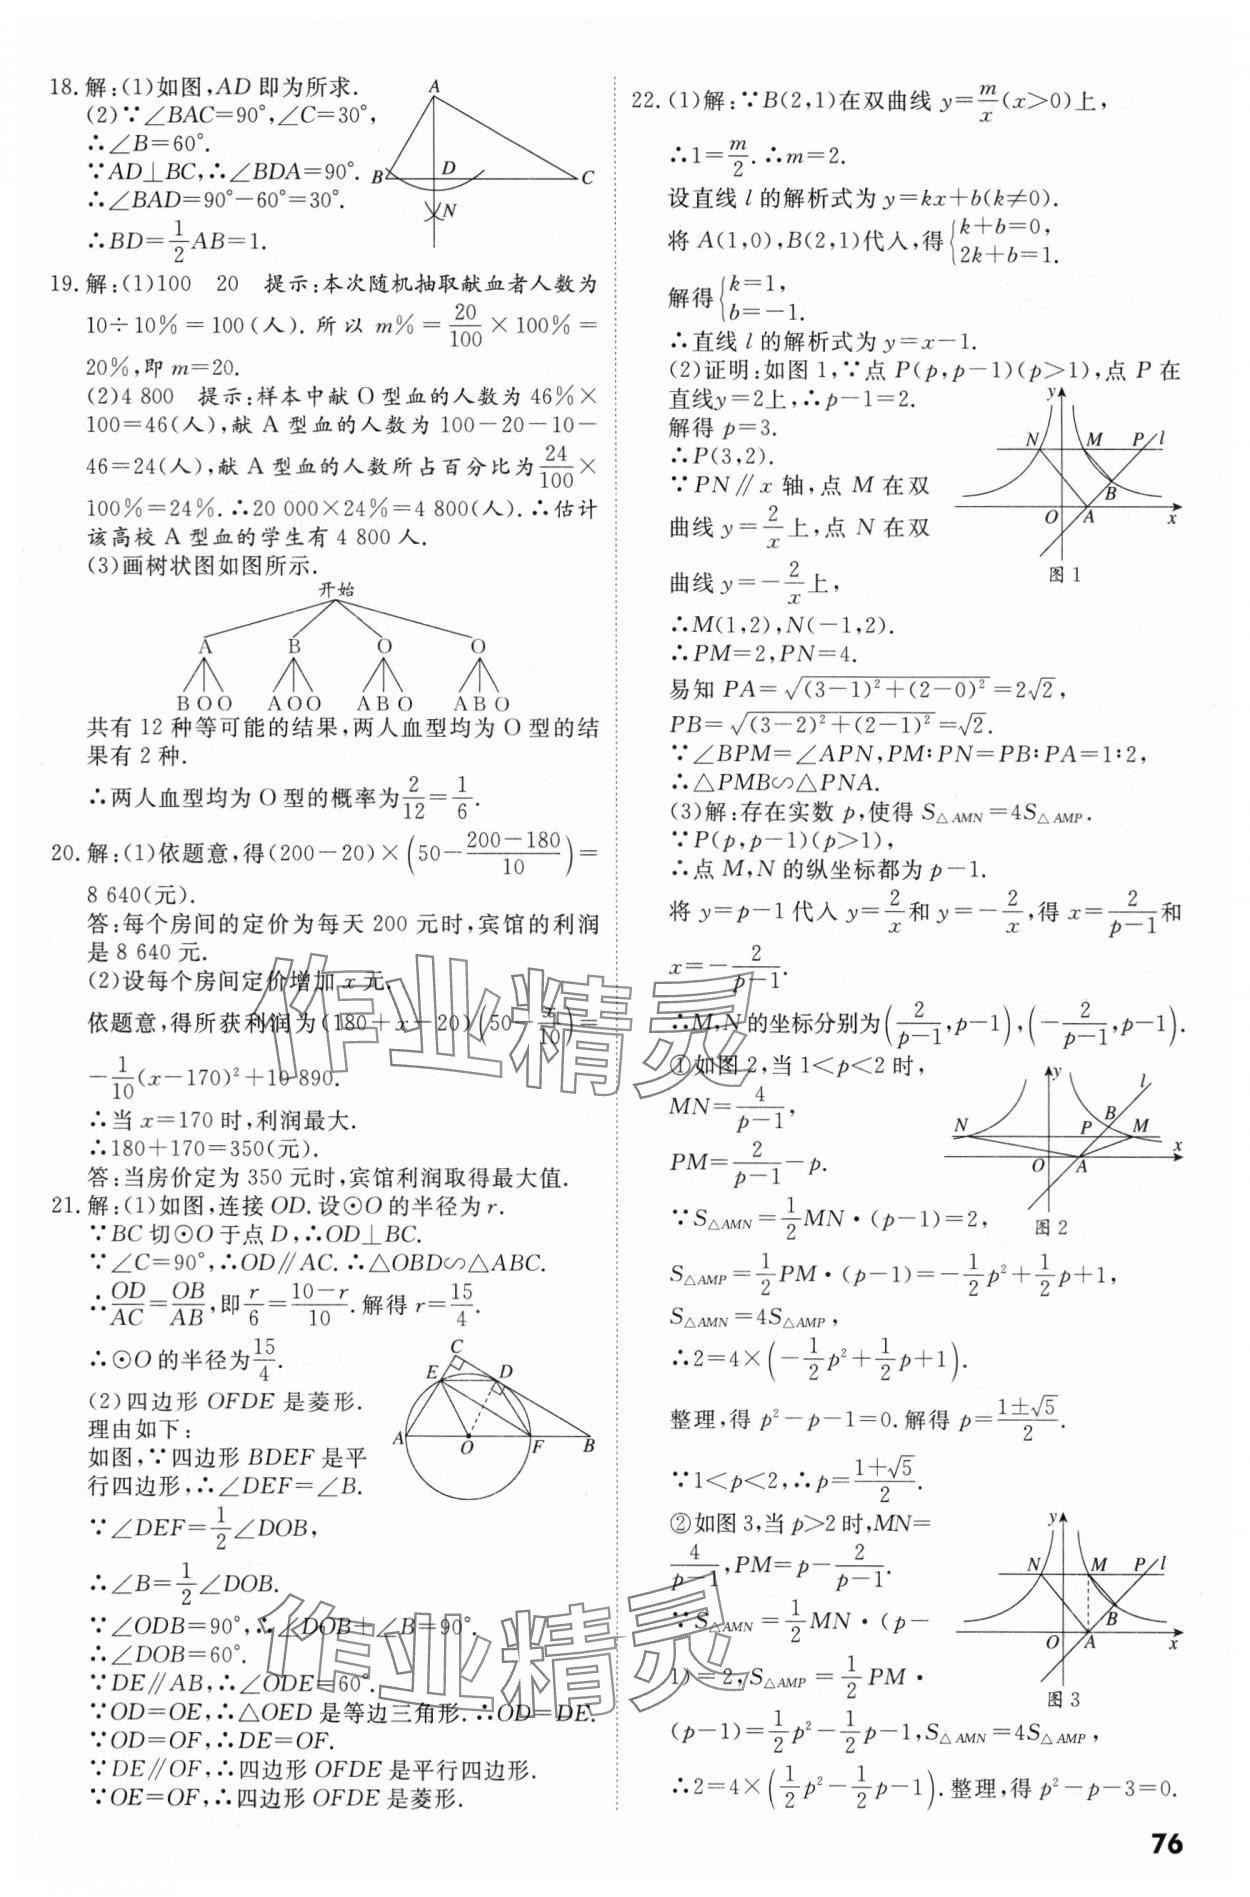 18. 解:(1)如图,AD 即为所求.
(2)∵∠BAC=90°,∠C=30°,
∴∠B=60°.
∵AD⊥BC,∴∠BDA=90°.
∴∠BAD=90°-60°=30°.
∴BD=1/2AB=1.
A
B
D
C
N
19. 解:(1)100 20 提示:本次随机抽取献血者人数为
10÷10%=100(人).所以 m%=20/100×100%=
20%,即 m=20.
(2)4 800 提示:样本中献 O 型血的人数为 46%×
100=46(人),献 A 型血的人数为 100-20-10-
46=24(人),献 A 型血的人数所占百分比为24/100×
100%=24%.∴20 000×24%=4 800(人).∴估计
该高校 A 型血的学生有 4 800 人.
(3)画树状图如图所示.
开始
A B O O
B O O A O O A B O A B O
共有 12 种等可能的结果,两人血型均为 O 型的结
果有 2 种.
∴两人血型均为 O 型的概率为2/12=1/6.
20. 解:(1)依题意,得(200-20)×(50-(200-180)/10)=
8 640(元).
答:每个房间的定价为每天 200 元时,宾馆的利润
是 8 640 元.
(2)设每个房间定价增加 x 元.
依题意,得所获利润为(180+x-20)(50-x/10)=
-1/10(x-170)²+10 890.
∴当 x=170 时,利润最大.
∴180+170=350(元).
答:当房价定为 350 元时,宾馆利润取得最大值.
21. 解:(1)如图,连接 OD.设⊙O 的半径为 r.
∵BC 切⊙O 于点 D,∴OD⊥BC.
∵∠C=90°,∴OD∥AC.∴△OBD∽△ABC.
∴OD/AC=OB/AB,即r/6=(10-r)/10.解得 r=15/4.
∴⊙O 的半径为15/4.
(2)四边形 OFDE 是菱形.
理由如下:
如图,∵四边形 BDEF 是平
行四边形,∴∠DEF=∠B.
∵∠DEF=1/2∠DOB,
∴∠B=1/2∠DOB.
∵∠ODB=90°,∴∠DOB+∠B=90°.
∴∠DOB=60°.
∵DE∥AB,∴∠ODE=60°.
∵OD=OE,∴△OED 是等边三角形.∴OD=DE.
∵OD=OF,∴DE=OF.
∵DE∥OF,∴四边形 OFDE 是平行四边形.
∵OE=OF,∴四边形 OFDE 是菱形.
C
E D
A O F B
22. (1)解:∵B(2,1)在双曲线 y=m/x(x>0)上,
∴1=m/2.∴m=2.
设直线 l 的解析式为 y=kx+b(k≠0).
将 A(1,0),B(2,1)代入,得{k+b=0,
2k+b=1.
解得{k=1,
b=-1.
∴直线 l 的解析式为 y=x-1.
(2)证明:如图 1,∵点 P(p,p-1)(p>1),点 P 在
直线y=2上,∴p-1=2.
解得 p=3.
∴P(3,2).
∵PN∥x 轴,点 M 在双
曲线 y=2/x上,点 N 在双
曲线 y=-2/x上,
∴M(1,2),N(-1,2).
∴PM=2,PN=4.
y
N M P l
B
O A x
图 1
易知 PA=√((3-1)²+(2-0)²)=2√2,
PB=√((3-2)²+(2-1)²)=√2.
∵∠BPM=∠APN,PM∶PN=PB∶PA=1∶2,
∴△PMB∽△PNA.
(3)解:存在实数 p,使得 S△AMN=4S△AMP.
∵P(p,p-1)(p>1),
∴点 M,N 的纵坐标都为 p-1.
将 y=p-1 代入 y=2/x和 y=-2/x,得 x=2/(p-1)和
x=-2/(p-1).
∴M,N 的坐标分别为(2/(p-1),p-1),(-2/(p-1),p-1).
①如图 2,当 1<p<2 时,
MN=4/(p-1),
PM=2/(p-1)-p.
∵S△AMN=1/2MN·(p-1)=2,
y
l
N P B M
O A x
图 2
S△AMP=1/2PM·(p-1)=-1/2p²+1/2p+1,
S△AMN=4S△AMP,
∴2=4×(-1/2p²+1/2p+1).
整理,得 p²-p-1=0.解得 p=(1±√5)/2.
∵1<p<2,∴p=(1+√5)/2.
②如图 3,当 p>2 时,MN=
4/(p-1),PM=p-2/(p-1).
∵S△AMN=1/2MN·(p-
1)=2,S△AMP=1/2PM·
(p-1)=1/2p²-1/2p-1,S△AMN=4S△AMP,
∴2=4×(1/2p²-1/2p-1).整理,得 p²-p-3=0.
y
N M P l
B
O A x
图 3
作业精灵
作业精灵
76